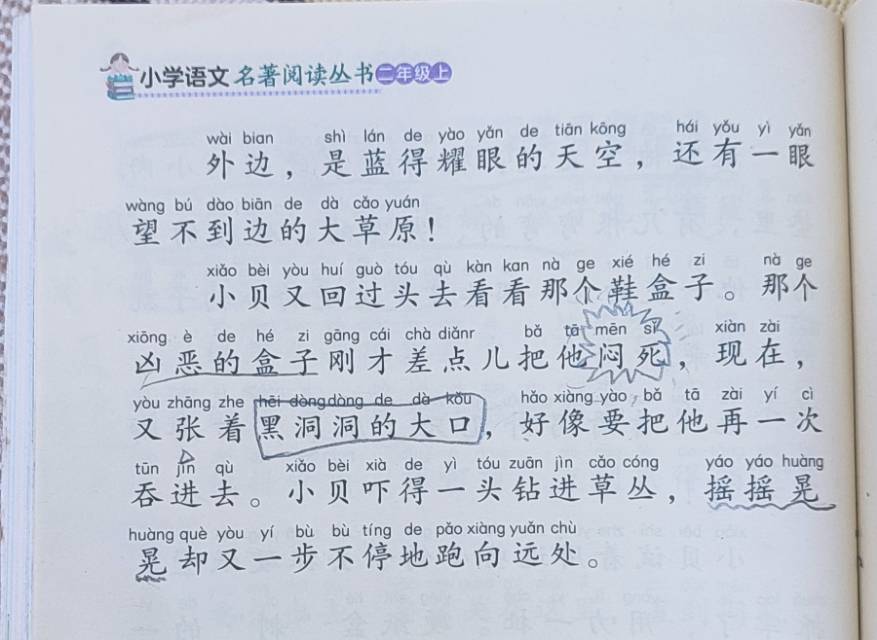 小学语文名著阅读丛书二年级上
wài bian shì lán de yào yǎn de tiān kōng hái yǒu yì yǎn
外边，是蓝得耀眼的天空，还有一眼
wàng bú dào biān de dà cǎo yuán
望不到边的大草原！
xiǎo bèi yòu huí guò tóu qù kàn kan nà ge xié hé zi nà ge
小贝又回过头去看看那个鞋盒子。那个
xiōng è de hé zi gāng cái chà diǎnr bǎ tā mēn sǐ xiàn zài
凶恶的盒子刚才差点儿把他闷死，现在，
yòu zhāng zhe hēi dòng dòng de dà kǒu hǎo xiàng yào bǎ tā zài yí cì
又张着黑洞洞的大口，好像要把他再一次
tūn jìn qù xiǎo bèi xià de yì tóu zuān jìn cǎo cóng yáo yáo huàng
吞进去。小贝吓得一头钻进草丛，摇摇晃
huàng què yòu yí bù bù tíng de pǎo xiàng yuǎn chù
晃却又一步不停地跑向远处。